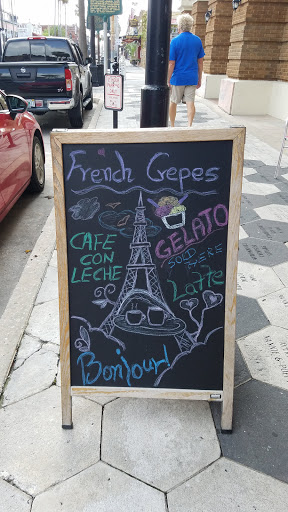 French Cepes
CAFE
CON
LECHE
GELATO
SOLD HERE
Latte
Bonjour